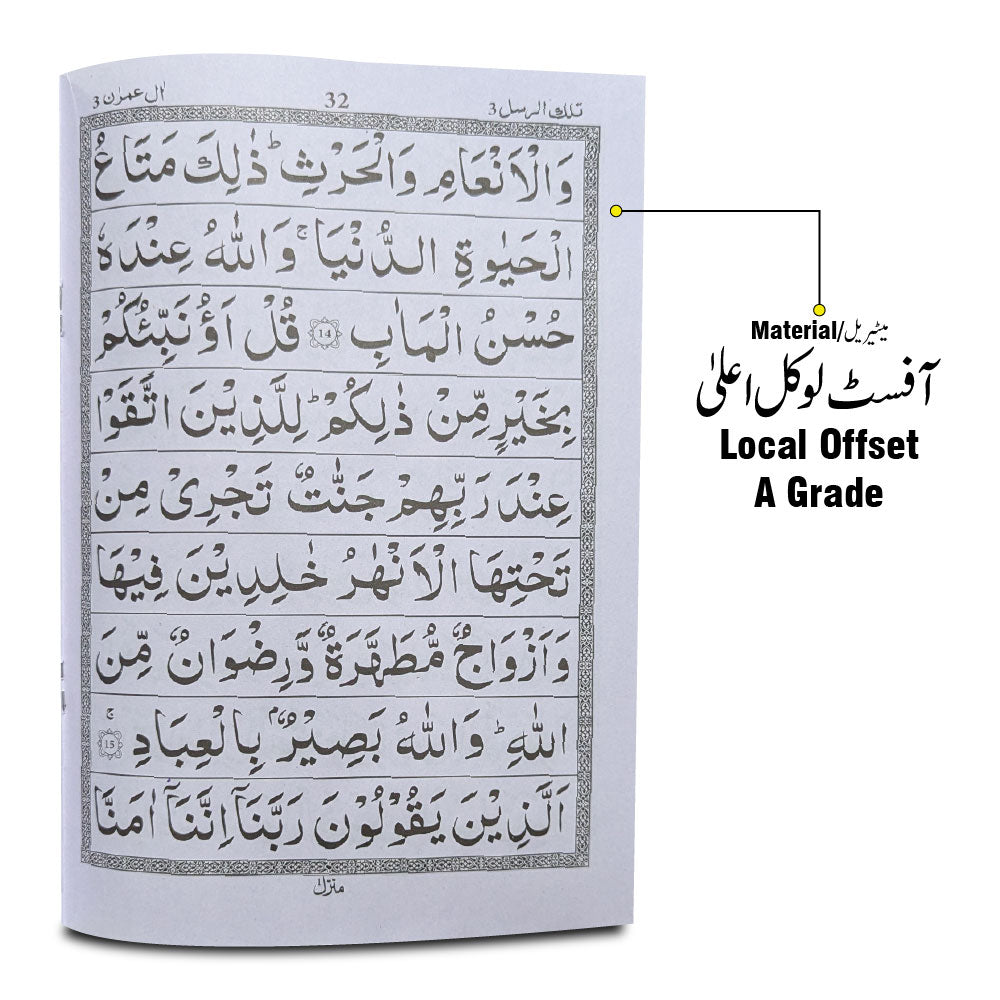 تلك الرسل 3
32
اٰل عمرٰن 3
وَالْاَنْعَامِ وَالْحَرْثِ ؕ ذٰلِكَ مَتَاعُ
الْحَيٰوةِ الدُّنْيَا ۚ وَاللّٰهُ عِنْدَهٗ
حُسْنُ الْمَاٰبِ 14 قُلْ اَؤُنَبِّئُكُمْ
بِخَيْرٍ مِّنْ ذٰلِكُمْ ؕ لِلَّذِيْنَ اتَّقَوْا
عِنْدَ رَبِّهِمْ جَنّٰتٌ تَجْرِيْ مِنْ
تَحْتِهَا الْاَنْهٰرُ خٰلِدِيْنَ فِيْهَا
وَاَزْوَاجٌ مُّطَهَّرَةٌ وَّرِضْوَانٌ مِّنَ
اللّٰهِ ؕ وَاللّٰهُ بَصِيْرٌۢ بِالْعِبَادِ ۚ 15
اَلَّذِيْنَ يَقُوْلُوْنَ رَبَّنَاۤ اِنَّنَاۤ اٰمَنَّا
منزل
Material/میٹیریل
آفسٹ لوکل اعلیٰ
Local Offset
A Grade